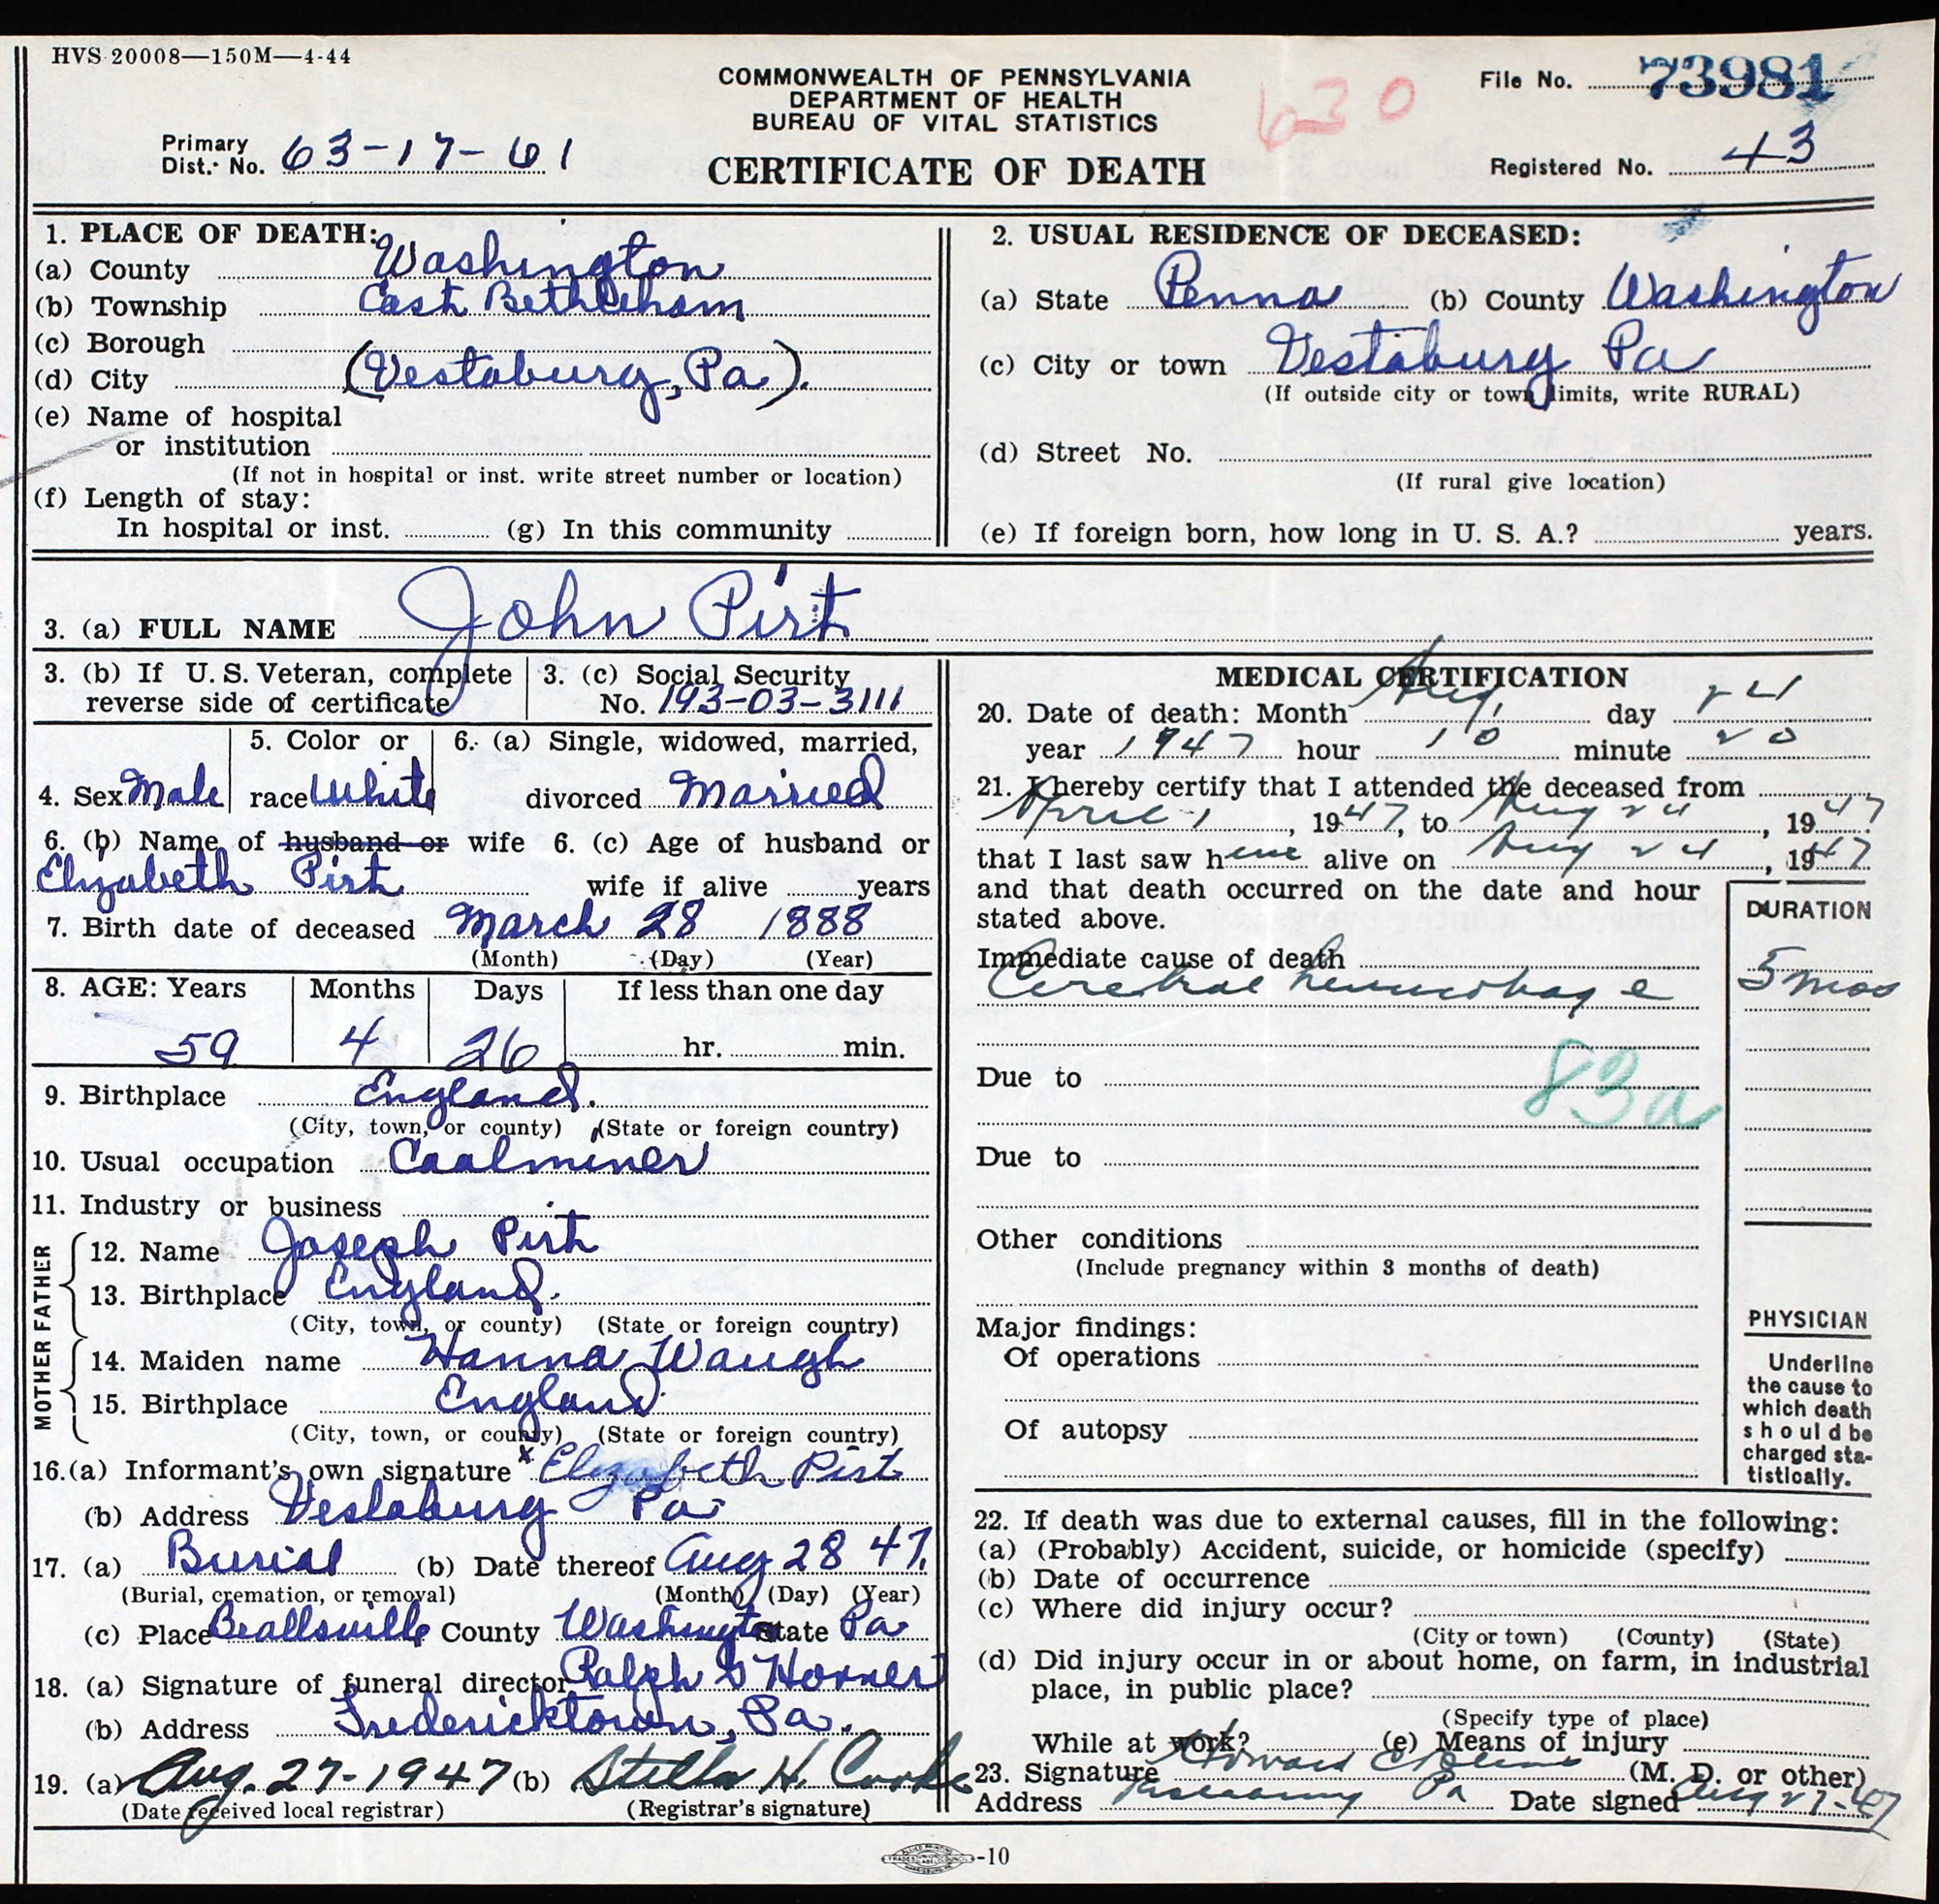 HVS 20008—150M—4-44
COMMONWEALTH OF PENNSYLVANIA
DEPARTMENT OF HEALTH
BUREAU OF VITAL STATISTICS
CERTIFICATE OF DEATH
630
File No. 73981
Primary
Dist. No. 63-17-61
Registered No. 43
1. PLACE OF DEATH:
(a) County Washington
(b) Township East Bethlehem
(c) Borough
(d) City (Vestaburg, Pa).
(e) Name of hospital
or institution
(If not in hospital or inst. write street number or location)
(f) Length of stay:
In hospital or inst. (g) In this community
2. USUAL RESIDENCE OF DECEASED:
(a) State Penna (b) County Washington
(c) City or town Vestaburg Pa
(If outside city or town limits, write RURAL)
(d) Street No.
(If rural give location)
(e) If foreign born, how long in U. S. A.? years.
3. (a) FULL NAME John Pirt
3. (b) If U. S. Veteran, complete
reverse side of certificate
3. (c) Social Security
No. 193-03-3111
4. Sex Male
5. Color or
race White
6. (a) Single, widowed, married,
divorced Married
6. (b) Name of husband or wife
Elizabeth Pirt
6. (c) Age of husband or
wife if alive years
7. Birth date of deceased March 28 1888
(Month) (Day) (Year)
8. AGE: Years Months Days If less than one day
59 4 26 hr. min.
9. Birthplace England.
(City, town, or county) (State or foreign country)
10. Usual occupation Coalminer
11. Industry or business
FATHER
12. Name Joseph Pirt
13. Birthplace England.
(City, town, or county) (State or foreign country)
MOTHER
14. Maiden name Hanna Waugh
15. Birthplace England
(City, town, or county) (State or foreign country)
16.(a) Informant's own signature x Elizabeth Pirt
(b) Address Vestaburg Pa
17. (a) Burial (b) Date thereof Aug 28 47.
(Burial, cremation, or removal) (Month) (Day) (Year)
(c) Place Beallsville County Washington State Pa
18. (a) Signature of funeral director Ralph G Horner
(b) Address Fredericktown, Pa.
19. (a) Aug. 27-1947 (b) Stella H. Cooke
(Date received local registrar) (Registrar's signature)
MEDICAL CERTIFICATION
20. Date of death: Month Aug, day 24
year 1947 hour 10 minute 20
21. I hereby certify that I attended the deceased from
April 1, 1947, to Aug 24, 1947
that I last saw him alive on Aug 24, 1947
and that death occurred on the date and hour
stated above.
DURATION
Immediate cause of death
Cerebral hemorrhage 5 mos
83a
Due to
Due to
Other conditions
(Include pregnancy within 3 months of death)
Major findings:
Of operations
Of autopsy
PHYSICIAN
Underline
the cause to
which death
should be
charged sta-
tistically.
22. If death was due to external causes, fill in the following:
(a) (Probably) Accident, suicide, or homicide (specify)
(b) Date of occurrence
(c) Where did injury occur?
(City or town) (County) (State)
(d) Did injury occur in or about home, on farm, in industrial
place, in public place?
(Specify type of place)
While at work? (e) Means of injury
23. Signature Howard (M. D. or other)
Address Pa Date signed Aug 27-47
-10